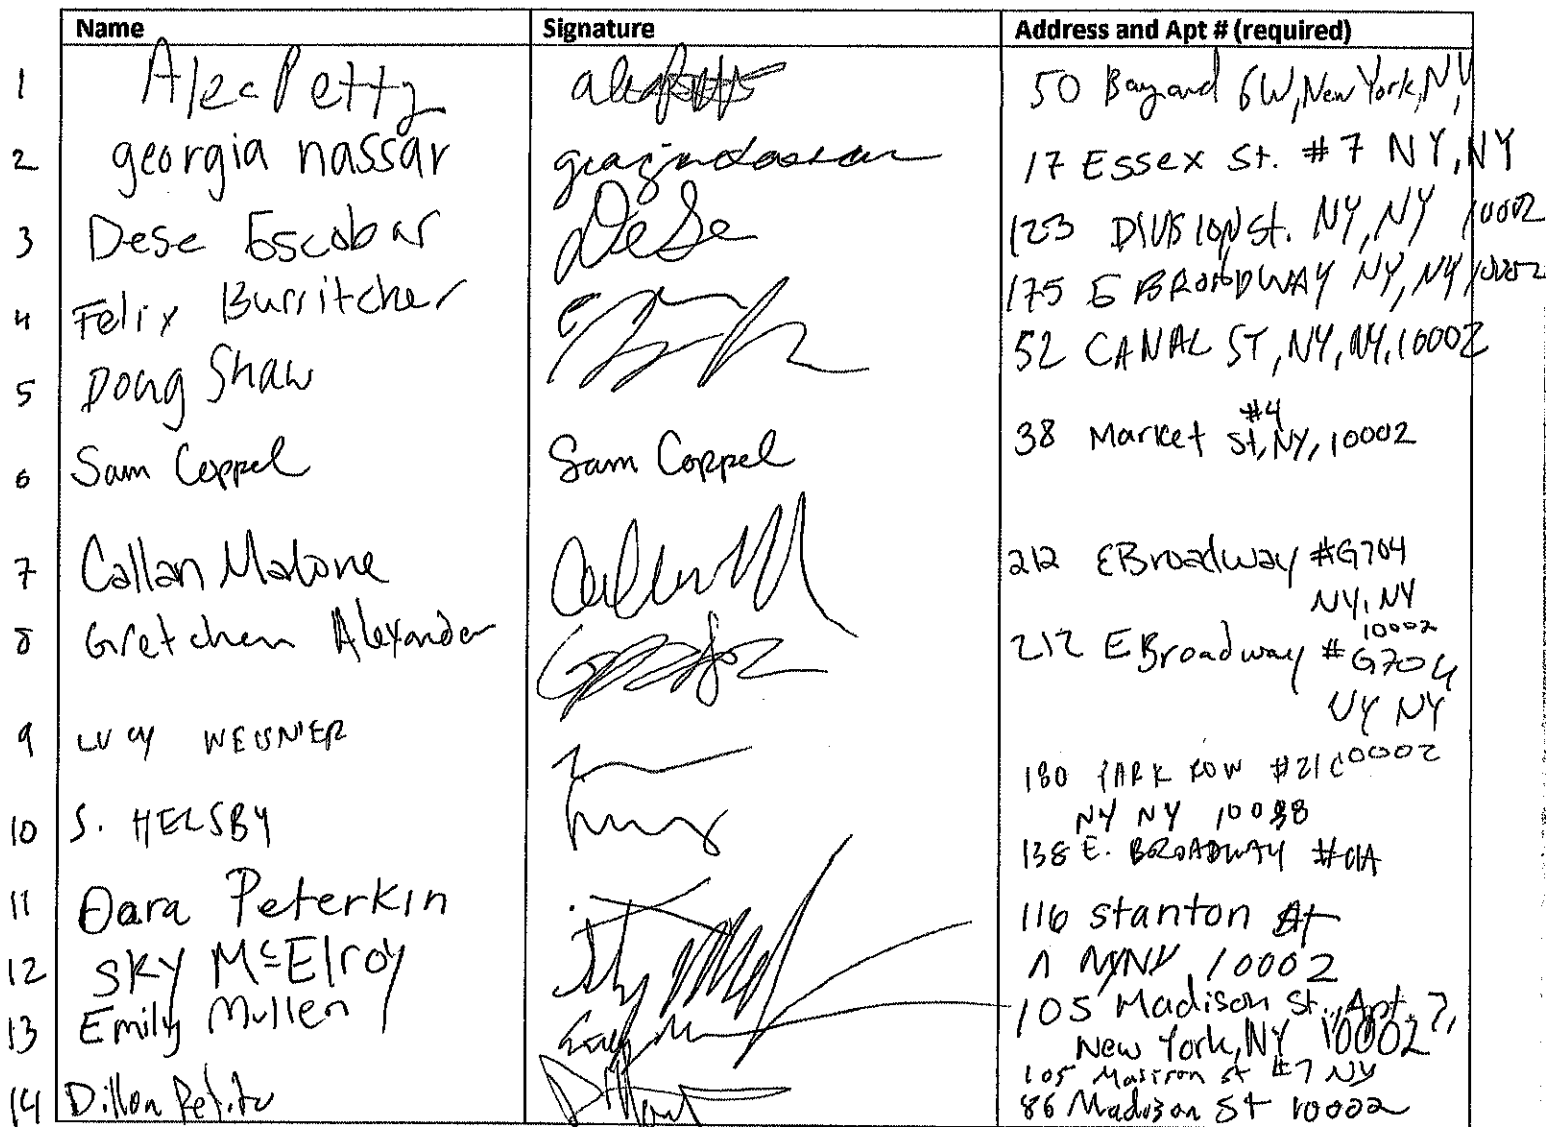 Name Signature Address and Apt # (required)
1 Alec Petty 50 Bayard 6W, New York, NY
2 georgia nassar 17 Essex St. #7 NY, NY
3 Dese Escobar DeSe 123 DIVISION St. NY, NY 10002
4 Felix Burritcher 175 E BROADWAY NY, NY 10002
5 Doug Shaw 52 CANAL ST, NY, NY, 10002
6 Sam Coppel Sam Coppel 38 Market St, #4 NY, 10002
7 Callan Malone 212 EBroadway #G704
NY, NY
10002
8 Gretchen Alexander 212 EBroadway #G704
NY NY
10002
9 LUCY WEISNER 180 PARK ROW #21C
NY NY 10038
10 S. HELSBY 138 E. BROADWAY
11 Dara Peterkin 116 Stanton
12 SKY McElroy NYNY 10002
13 Emily Mullen 105 Madison St., Apt. 7,
New York, NY 10002
105 St #7 NY
14 Dillon 86 Madison St 10002